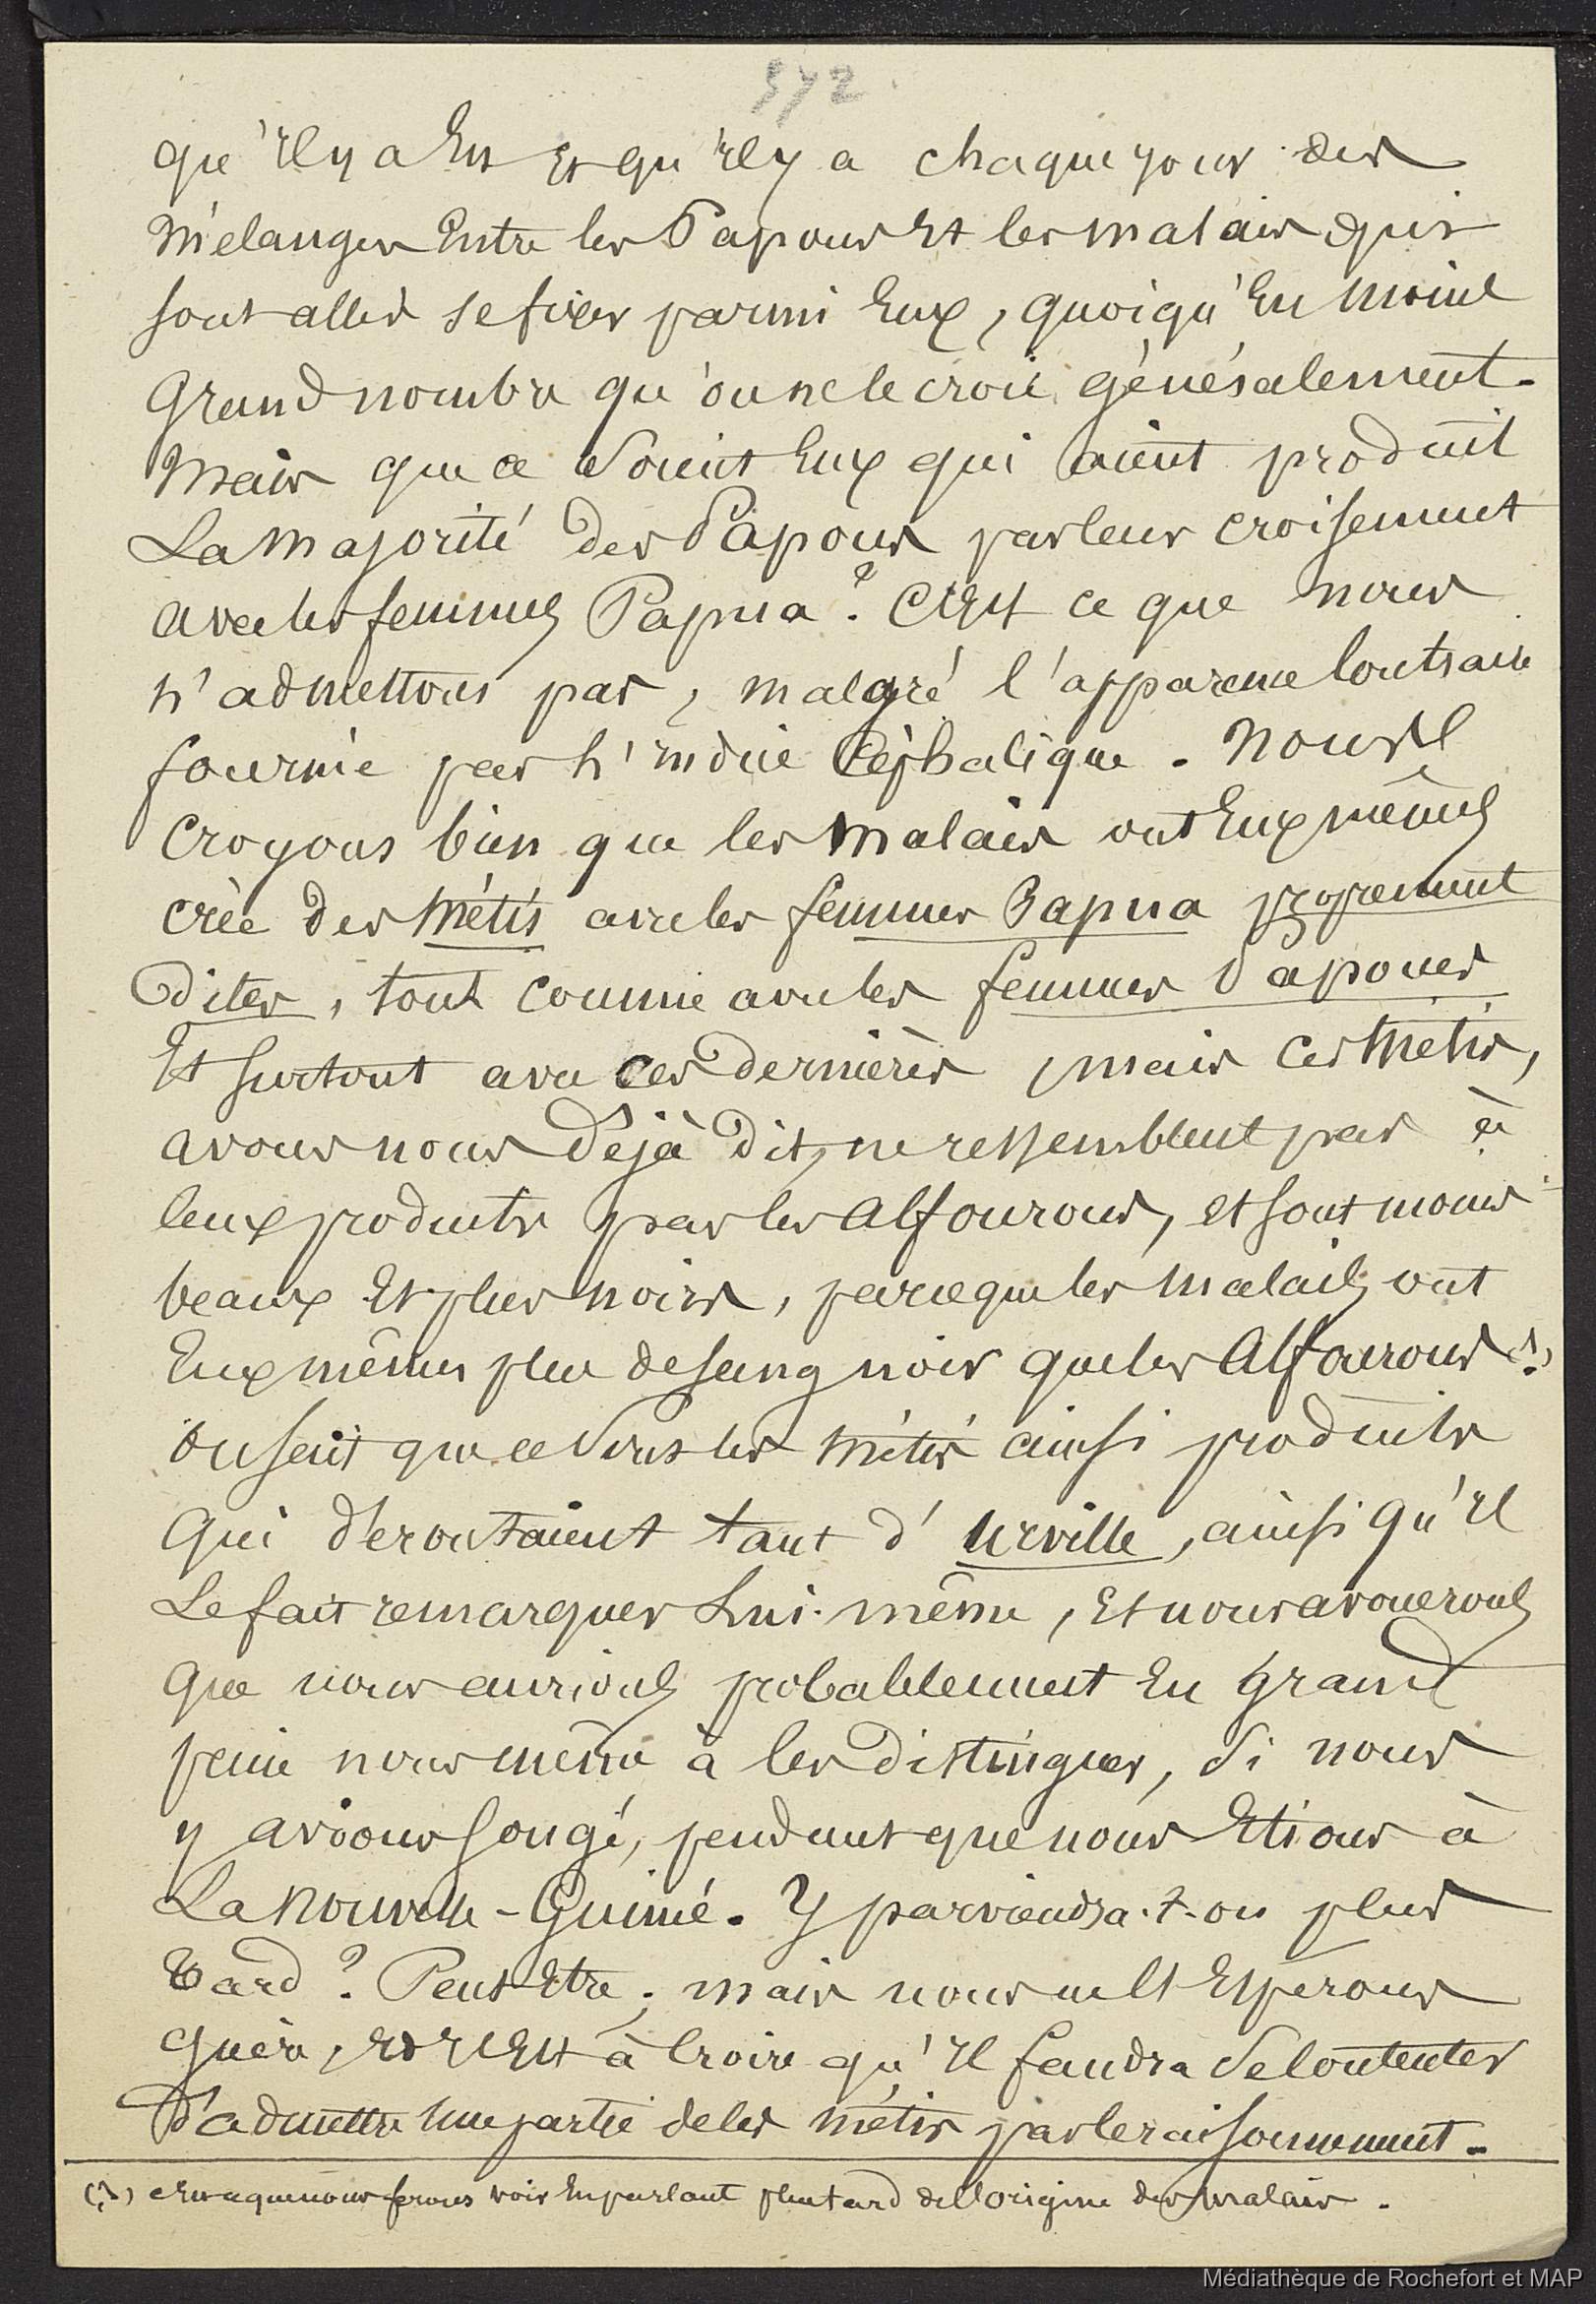 572
qu'il y a eu et qu'il y a chaque jour des
mélanges entre les Papous et les malais qui
sont allés se fixer parmi eux, quoiqu'en moins
grand nombre qu'on ne le croie généralement.
Mais que ce soient eux qui aient produit
La majorité des Papous par leur croisement
avec les femmes Papua ? C'est ce que nous
n'admettons pas, malgré l'apparence contraire
fournie par l'indice Céphalique. Nous
croyons bien que les malais ont eux mêmes
crée des métis avec les femmes Papua proprement
dites, tout comme avec les femmes Papoues
et surtout avec ces dernières, mais ces métis,
avons nous déjà dit, ne ressemblent pas à
ceux produits par les Alfourous, et sont moins
beaux et plus noirs, parceque les malais ont
eux mêmes plus de sang noir que les Alfourous (1).
on sait que ce sont les métis ainsi produits
qui déroutaient tant d'Urville, ainsi qu'il
Le fait remarquer Lui-même, et nous avouerons
que nous aurions probablement eu grand
peine nous même à les distinguer, si nous
y avions songé, pendant que nous étions à
La Nouvelle-Guinée. Y parviendra-t-on plus
tard ? Peut-être ; mais nous ne l'espérons
guère, et il est à croire qu'il faudra se contenter
d'admettre une partie de ces métis par le raisonnement.
(1) ce que nous ferons voir en parlant plus tard de l'origine des malais.
Médiathèque de Rochefort et MAP